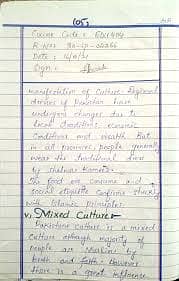 (05)
Course Code: EDU404
Date: 16/8/21
Sign:
manifestation of Culture. Regional
dresses of Pakistan have
undergone changes due to
local traditions, economic
Conditions and wealth. But
in all province people generally
wear the traditional dress
by Shalwar Kameez.
In food we consume and
social etiquette confirm strictly
with Islamic principles.
v, Mixed Culture:
Pakistani culture is a mixed
culture although majority of
people are Muslims by
birth and faith. However
there is a great influence